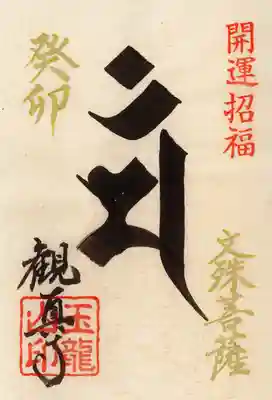 開運招福
文殊菩薩
癸卯
観真
玉龍
山印